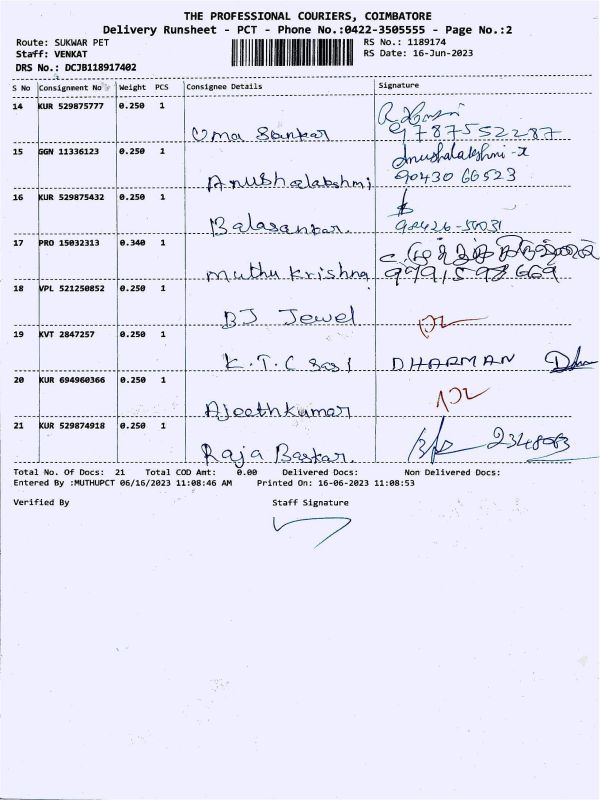 THE PROFESSIONAL COURIERS, COIMBATORE
Delivery Runsheet - PCT - Phone No.:0422-3505555 - Page No.:2
Route: SUKWAR PET RS No.: 1189174
Staff: VENKAT RS Date: 16-Jun-2023
DRS No.: DCJB118917402
S No Consignment No Weight PCS Consignee Details Signature
14 KUR 529875777 0.250 1
Uma Sankar 9787552287
15 GGN 11336123 0.250 1 Anushalakshmi
Anushalakshmi 90430 66523
16 KUR 529875432 0.250 1
Balasankar.
17 PRO 15032313 0.340 1
Muthu Krishna
18 VPL 521250852 0.250 1
BJ Jewel
19 KVT 2847257 0.250 1
K.T.C Sasi DHARMAN
20 KUR 694960366 0.250 1
Ajeethkumar
21 KUR 529874918 0.250 1
Raja Baskar.
Total No. Of Docs: 21 Total COD Amt: 0.00 Delivered Docs: Non Delivered Docs:
Entered By :MUTHUPCT 06/16/2023 11:08:46 AM Printed On: 16-06-2023 11:08:53
Verified By Staff Signature